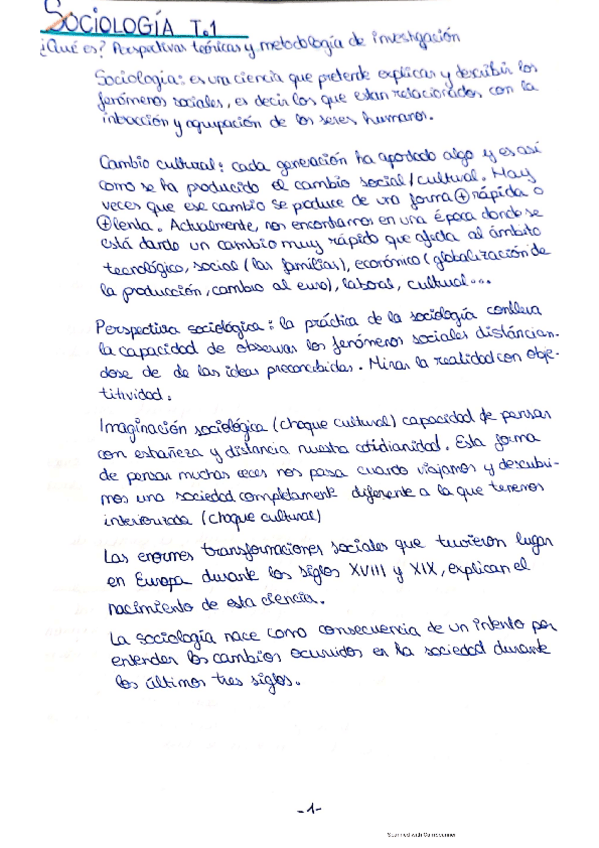 SOCIOLOGÍA T.1
¿Qué es? Perspectivas teóricas y metodología de investigación
Sociología: es una ciencia que pretende explicar y describir los
fenómenos sociales, es decir los que estan relacionados con la
intracción y agrupación de los seres humanos.
Cambio cultural: cada generación ha aportado algo y es así
como se ha producido el cambio social/cultural. Hay
veces que ese cambio se produce de una forma ⊕ rápida o
⊕ lenta. Actualmente, nos encontramos en una época donde se
está dando un cambio muy rápido que afecta al ámbito
tecnológico, social (las familias), económico (globalización de
la producción, cambio al euro), laboral, cultural...
Perspectiva sociológica: la práctica de la sociología conlleva
la capacidad de observar los fenómenos sociales distáncian-
dose de de las ideas preconcebidas. Mirar la realidad con obje-
titividad.
Imaginación sociológica (choque cultural) capacidad de pensar
con estrañeza y distancia nuestra cotidianidad. Esta forma
de pensar muchas veces nos pasa cuando viajamos y descubri-
mos una sociedad completamente diferente a la que tenemos
interiorizada (choque cultural)
Las enormes transformaciones sociales que tuvieron lugar
en Europa durante los siglos XVIII y XIX, explican el
nacimiento de esta ciencia.
La sociología nace como consecuencia de un intento por
entender los cambios ocurridos en la sociedad durante
los últimos tres siglos.
-1-
Scanned with CamScanner